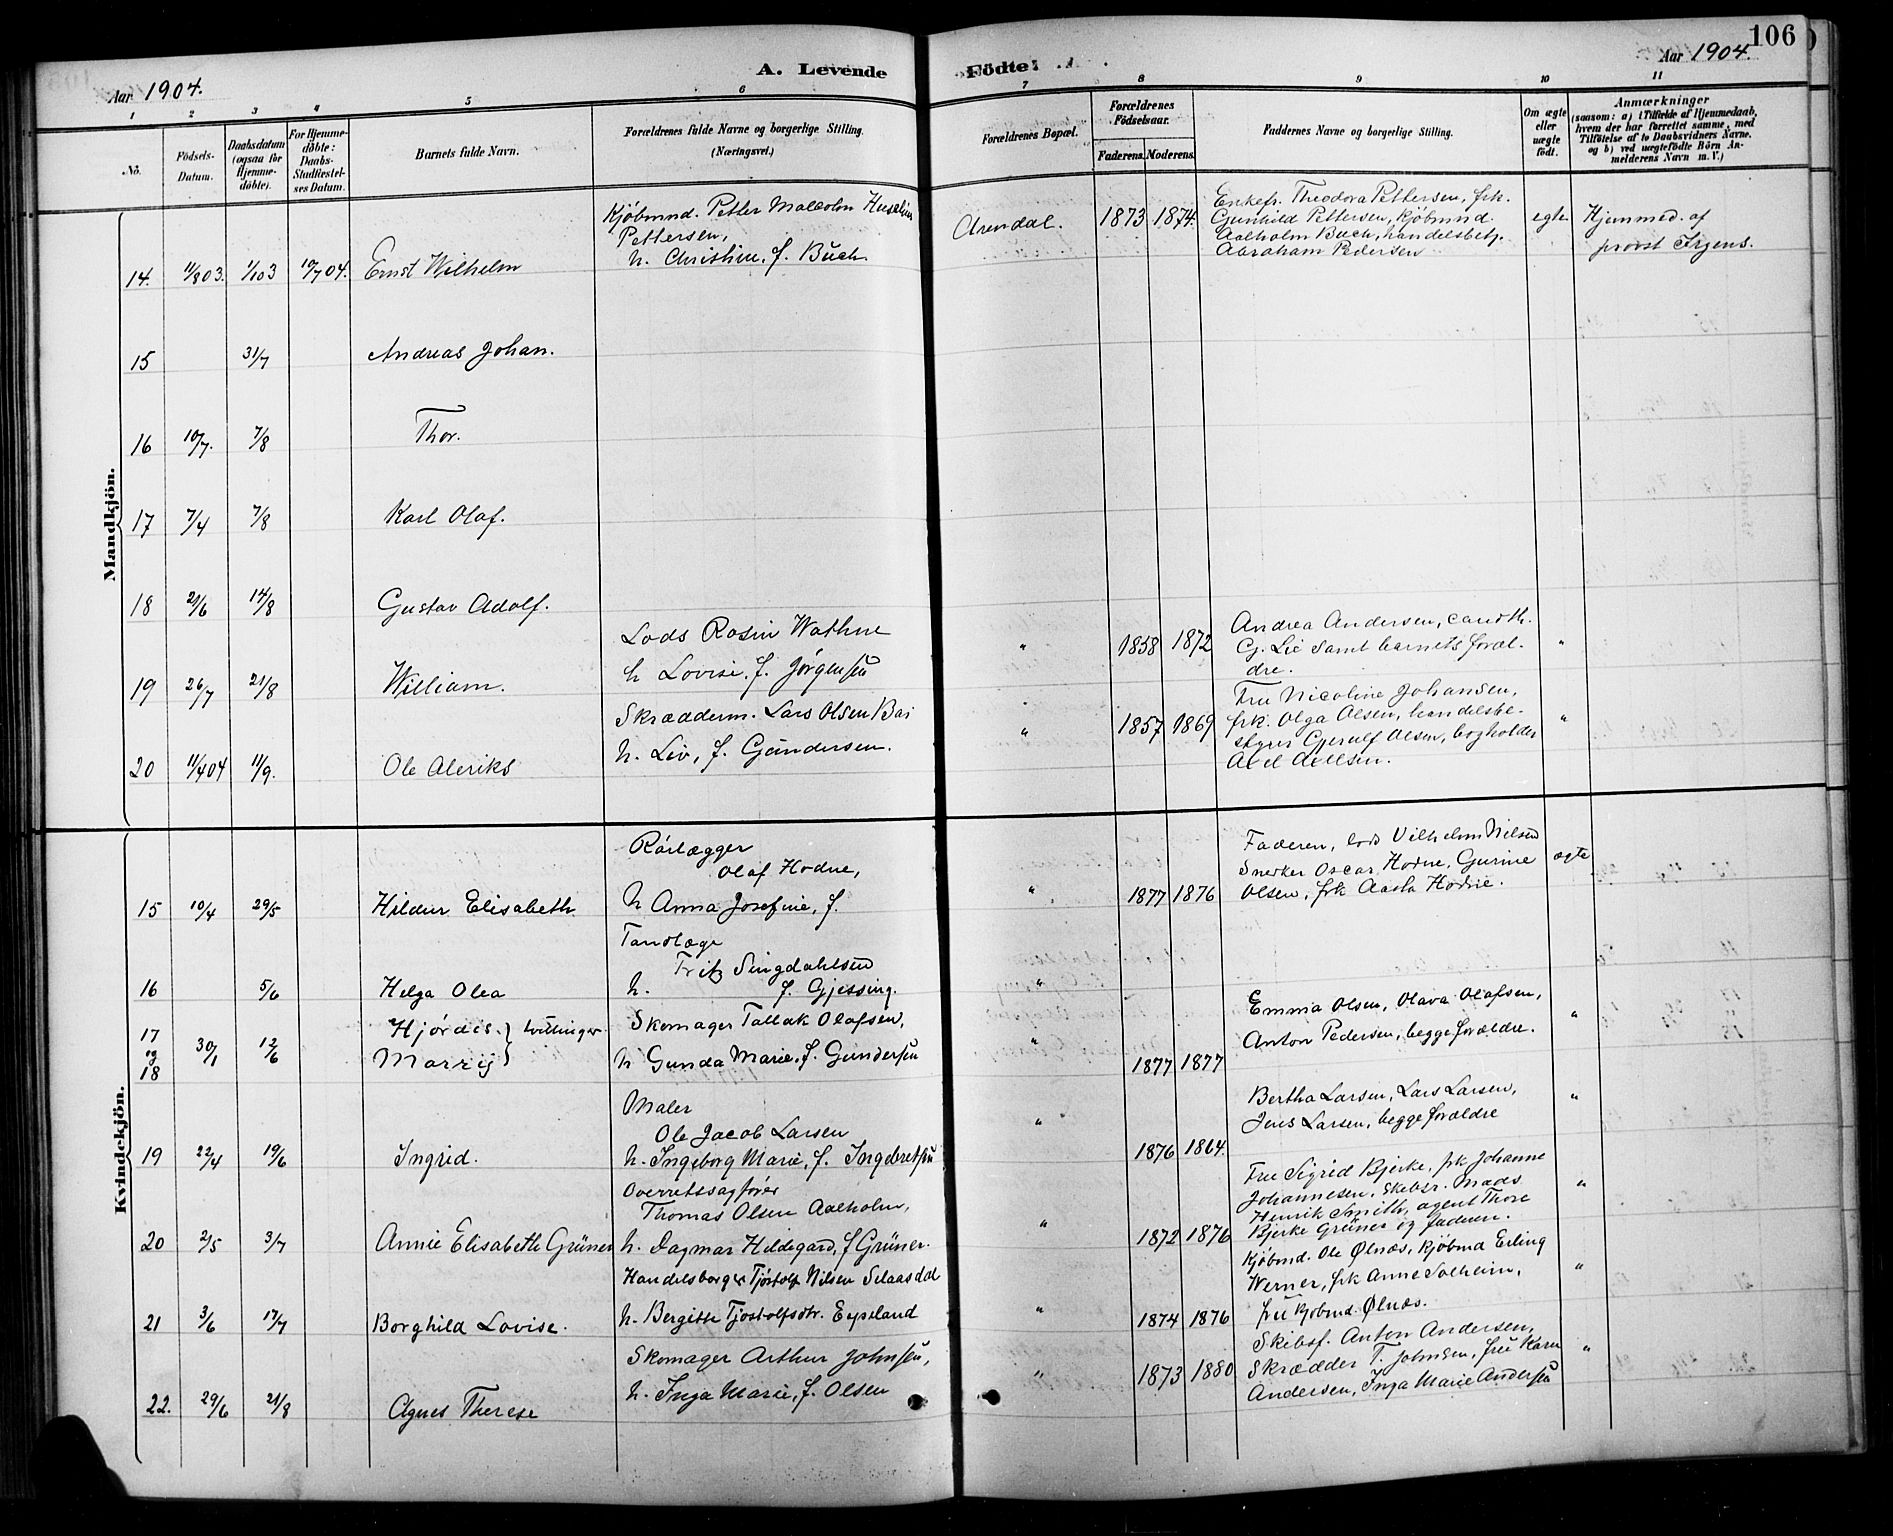 106
Aar 1904.
A. Levende
Födte.
Aar 1904.
1
2
3
4
5
6
7
8
9
10
11
No.
Födsels-
Datum.
Daabsdatum
(ogsaa for
Hjemme-
döbte).
For Hjemme-
döbte:
Daabs-
Stadfæstel-
ses Datum.
Barnets fulde Navn.
Forældrenes fulde Navne og borgerlige Stilling.
(Næringsvei.)
Forældrenes Bopæl.
Forældrenes
Födselsaar.
Faderens.
Moderens.
Faddernes Navne og borgerlige Stilling.
Om ægte
eller
uægte
födt.
Anmærkninger
(saasom: a) i Tilfælde af Hjemmedaab,
hvem der har forrettet samme, med
Tilföielse af to Daabsvidners Navne.
og b) ved uægtefödte Börn An-
melderens Navn m. V.)
Mandkjön.
14. 11/8 03. 1/10 3 10/7 04. Ernst Wilhelm
Kjöbmnd. Petter Malcolm Huselius
Pettersen,
h. Christine, f. Buch.
Arendal. 1873 1874.
Enkefr. Theodora Pettersen, frk.
Gunhild Pettersen, Kjöbmnd.
Aalholm Buch, handelsbetj.
Abraham Pedersen
egte
Hjemmed. af
provst Irgens.
15 31/7 Andreas Johan.
16 10/7. 7/8 Thor.
17 7/4 7/8 Karl Olaf.
18 21/6 14/8 Gustav Adolf.
19 26/7 21/8 William.
Lods Rosin Wathne
h Lovise, f. Jørgensen
" 1858 1872
Andrea Andersen, cand th.
Cj. Lie samt barnets foræl-
dre.
"
20 11/4 04 11/9. Ole Aleriks
Skrædderm. Lars Olsen Bai
h. Liv, f. Gundersen.
" 1857 1869
Fru Nicoline Johansen,
frk. Olga Olsen, handelsbe-
styrer Gjerulf Olsen, bogholder
Axel Axelsen.
"
Kvindekjön.
15 10/4 29/5 Hildur Elisabeth
Rörlægger
Olaf Hodne,
h Anna Josefine, f.
" 1877 1876
Faderen, lods Vilhelm Nilsen
Snedker Oscar Hodne, Gurine
Olsen, frk Aasta Hodne.
ægte
16 5/6 Helga Olea
Tandlæge
Fritz Singdahlsen
h. f. Gjessing.
"
17
og
18
30/1 12/6 Hjördis } tvillinger
Marrij
Skomager Tallak Olafsen,
h Gunda Marie, f. Gundersen
" 1877 1877
Emma Olsen, Olava Olafsen,
Anton Pedersen, begge forældre.
"
19 22/4 19/6 Ingrid.
Maler
Ole Jacob Larsen
h. Ingeborg Marie, f. Ingebretsen
" 1876 1864.
Bertha Larsen, Lars Larsen,
Jens Larsen, begge forældre
"
20 2/5 3/7 Annie Elisabeth Grüner
Overretssagförer
Thomas Olsen Aalholm,
h. Dagmar Hildegard, f Grüner.
" 1872 1876
Fru Sigrid Bjerke, frk Johanne
Johannesen, Skibsr. Mads
Henrik Smith, agent Thore
Bjerke Grüner og faderen.
"
21 3/6 17/7 Borghild Lovise.
Handelsborger Tjöstolf Nilsen Selaasdal
h. Bergitte Tjostolfsdtr. Eppeland
" 1874 1876
Kjöbmd. Ole Ølnæs, Kjöbmd Erling
Werner, frk Anne Solheim,
fru Kjöbmd. Ølnæs.
"
22. 29/6 21/8 Agnes Therese
Skomager Arthur Johnsen,
h. Inga Marie, f. Olsen
" 1873 1880
Skibsf. Anton Andersen,
Skrædder T. Johnsen, fru Karen
Andersen, Inga Marie Andersen
"